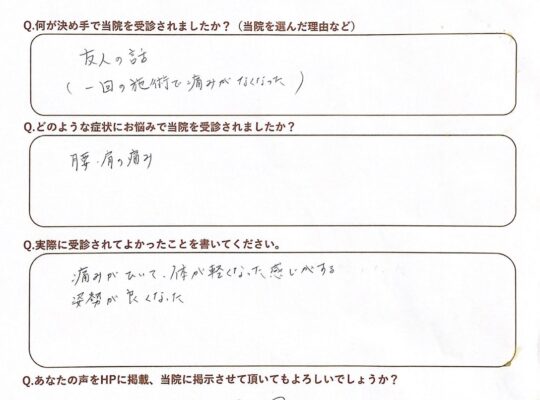 Q.何が決め手で当院を受診されましたか？（当院を選んだ理由など）
友人の話
(一回の施術で痛みがなくなった)
Q.どのような症状にお悩みで当院を受診されましたか？
腰・肩の痛み
Q.実際に受診されてよかったことを書いてください。
痛みがひいて、体が軽くなった感じがする
姿勢が良くなった
Q.あなたの声をHPに掲載、当院に掲示させて頂いてもよろしいでしょうか？